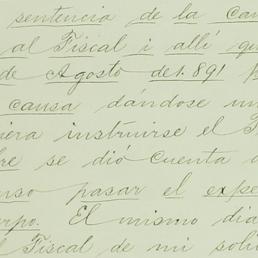 sentencia de la cau
al Fiscal i allí qu
de Agosto de 1.891
causa dándose un
iera instruirse el
re se dió cuenta
nso pasar el expe
erpo. El mismo dia
l Fiscal de mi soli